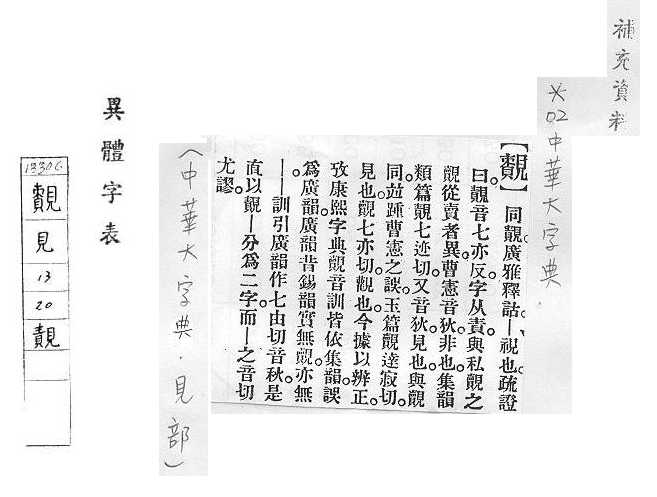 補充資料
※02中華大字典.
【】同䚍。廣雅釋詁—視也。疏證
曰。䚍音七亦反。字从責。與私覿之
覿從賣者異。曹憲音狄。非也。集韻
類篇䚍七迹切。又音狄。見也。與覿
同。竝踵曹憲之誤。玉篇覿達寂切。
見也。䚍七亦切。觀也。今據以辨正。
攷康熙字典䚍音訓皆依集韻。誤
爲廣韻。廣韻昔錫韻實無䚍。亦無
—訓。引廣韻作七由切音秋。是
直以䚍—分爲二字。而—之音切
尤謬。
（中華大字典．見部）
異體字表
見
13
20
䚍